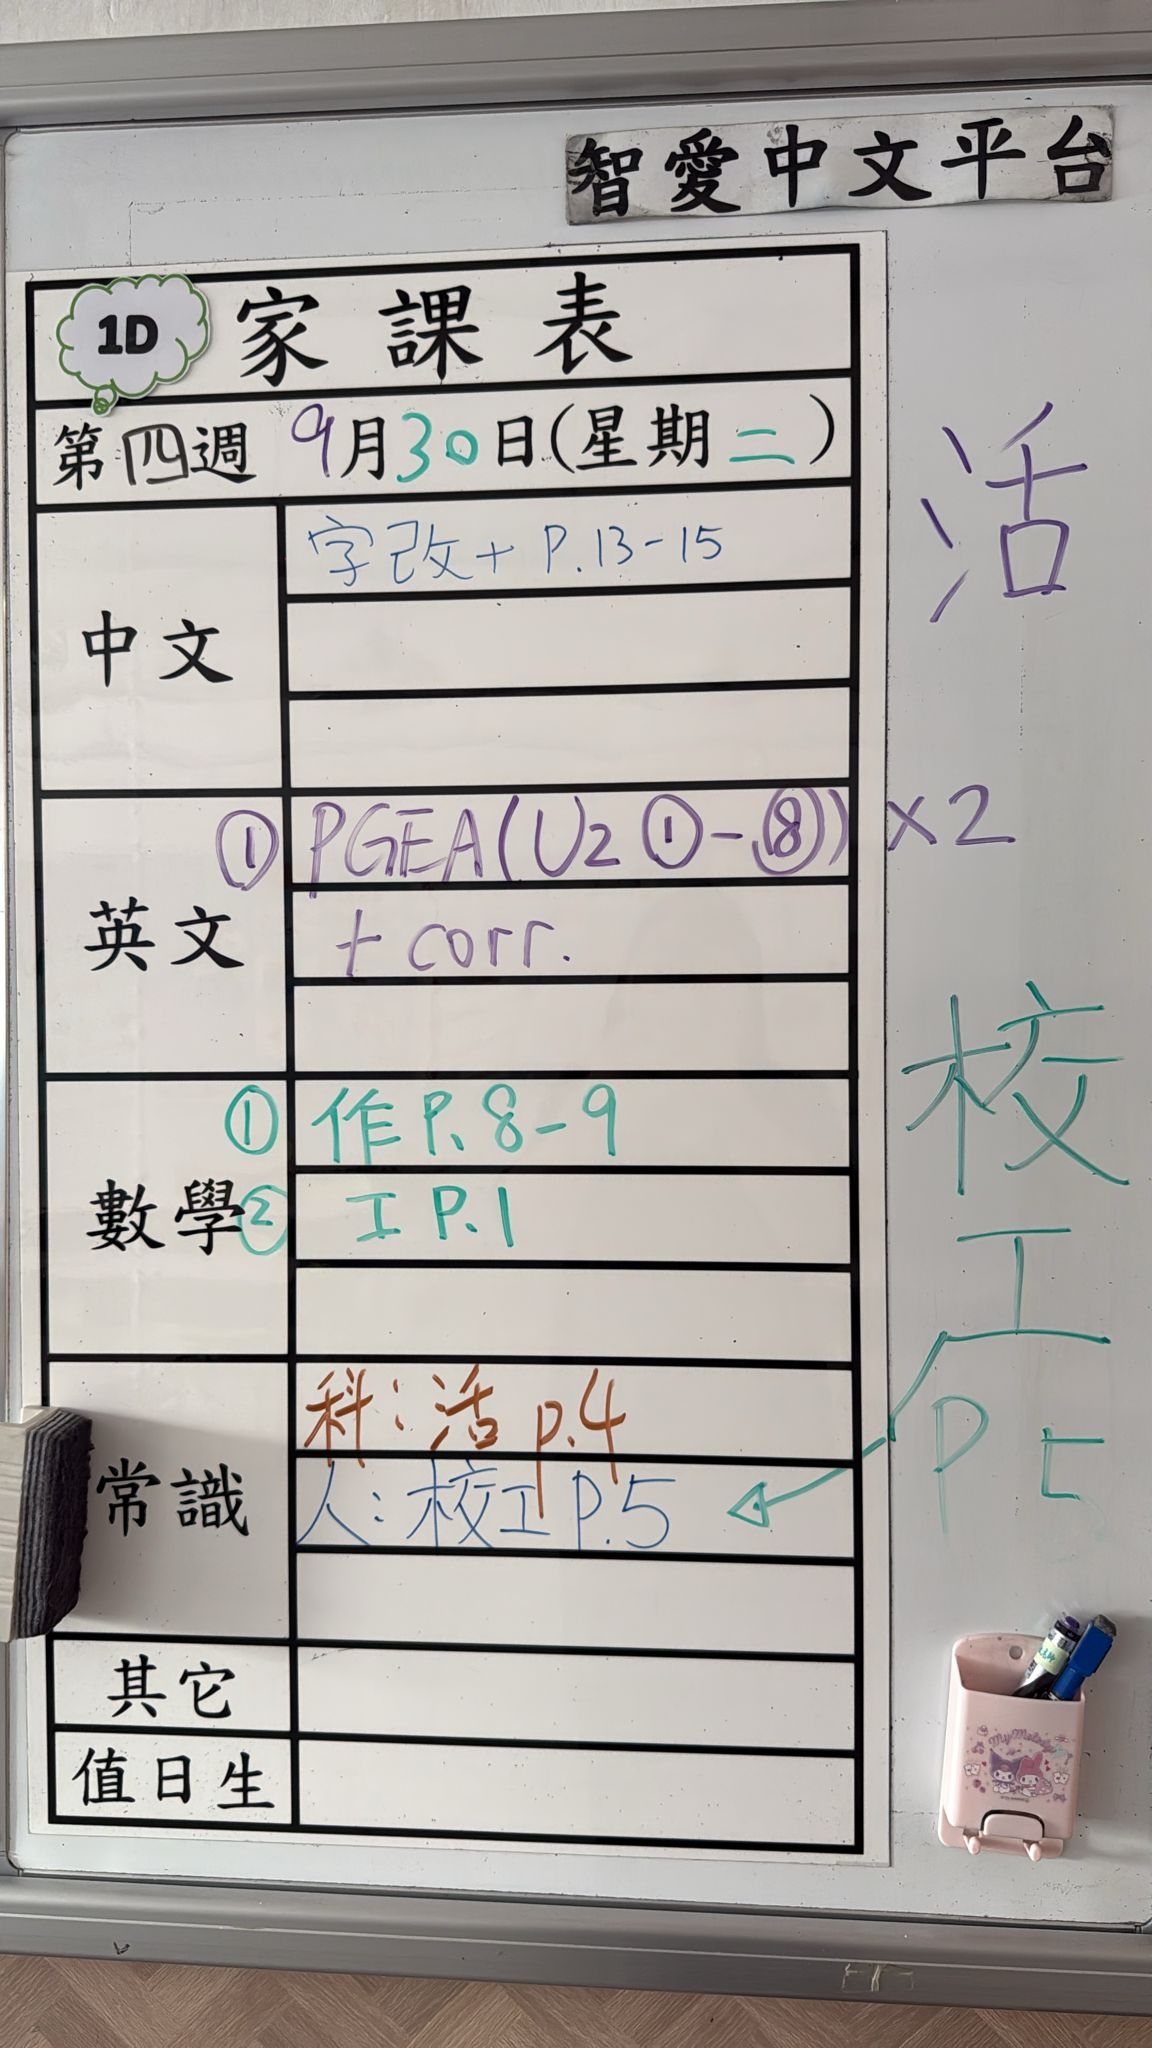 智愛中文平台
1D 家課表
第四週 9月30日(星期二)
中文
字改+ P.13-15
英文
① PGEA(U2 ①-⑧) x2
+ corr.
數學
① 作P. 8-9
② 工 P.1
常識
科:活 p.4
人:校工P.5
其它
值日生
活
校
工
P 5
My Melody